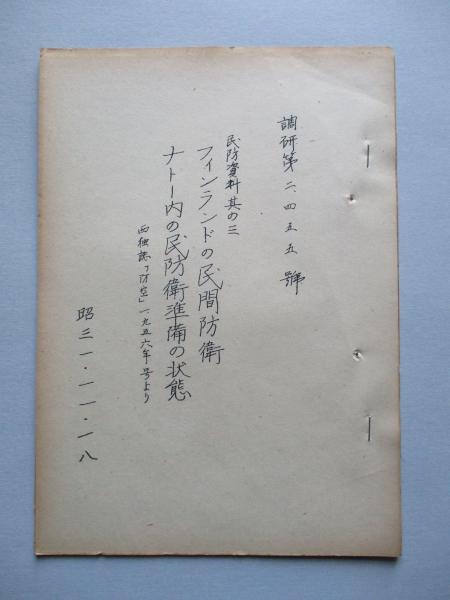 調研第二、四五五號
民防資料其の三
フィンランドの民間防衛
ナトー内の民防衛準備の状態
西独誌「防空」一九五六年号より
昭三一・一一・一八